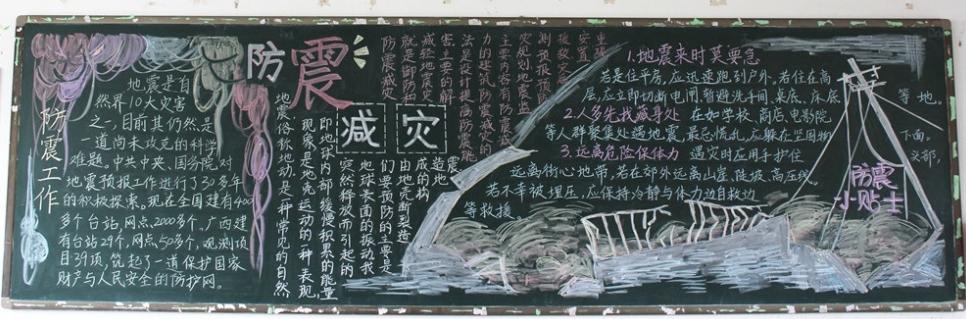 防震工作
地震是自
然界10大灾害
之一,目前其仍然是
一道尚未攻克的科学
难题。中共中央、国务院,对
地震预报工作进行了30多年
的积极探索。现在全国建有400
多个台站,网点2000多个,广西建
有台站29个,网点50多个,观测项
目39项,筑起了一道保护国家
财产与人民安全的防护网。
防震
减灾
地震俗称地动,是一种常见的自然
现象是地壳运动的一种表现,
即地球内部缓慢积累的能量
突然释放而引起的
地球表面的振动我
们要预防的主要是
由地壳断裂造
成的构
造地
震
防震减灾
就是御防和
减轻地震灾
害主要的解
法是设计提高防震能
力的建筑,防震减灾的
主要内容有防震减
灾规划地震监
测预报
1.地震来时莫要急
若是住平房,应迅速跑到户外,若住在高
层,应立即切断电闸,暂避洗手间、桌底、床底
等地。
2.人多先找藏身处
在如学校、商店、电影院
等人群聚集处遇地震,最忌慌乱,应躲在坚固物
下面。
3.远离危险保体力
遇灾时应用手护住
头部,
远离街心地带,若在郊外远离山崖、陡坡、高压线。
若不幸被埋压,应保持冷静与体力边自救边
等救援。
防震
小贴士